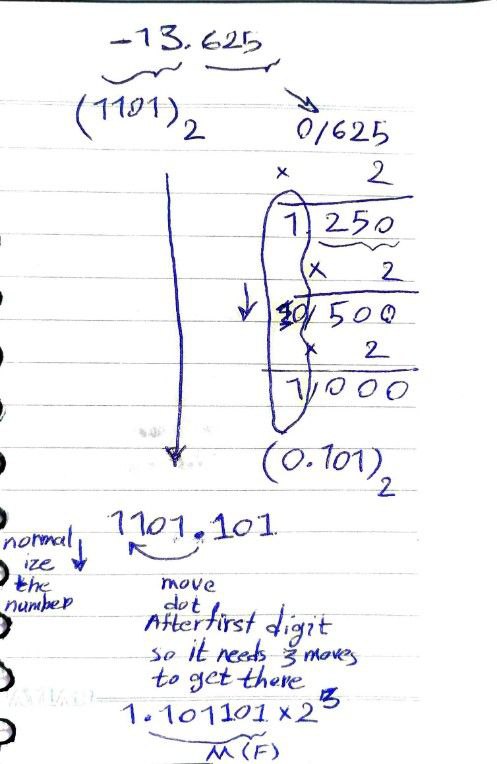 -13.625
(1101)2
0/625
× 2
1.250
× 2
0/500
× 2
1/000
(0.101)2
1101.101
normal
ize
the
number
move
dot
After first digit
so it needs 3 moves
to get there
1.101101 × 2³
M(F)